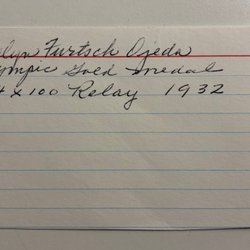 lyn Furtsch Ojeda
ympic Gold Medal
4 x 100 Relay 1932